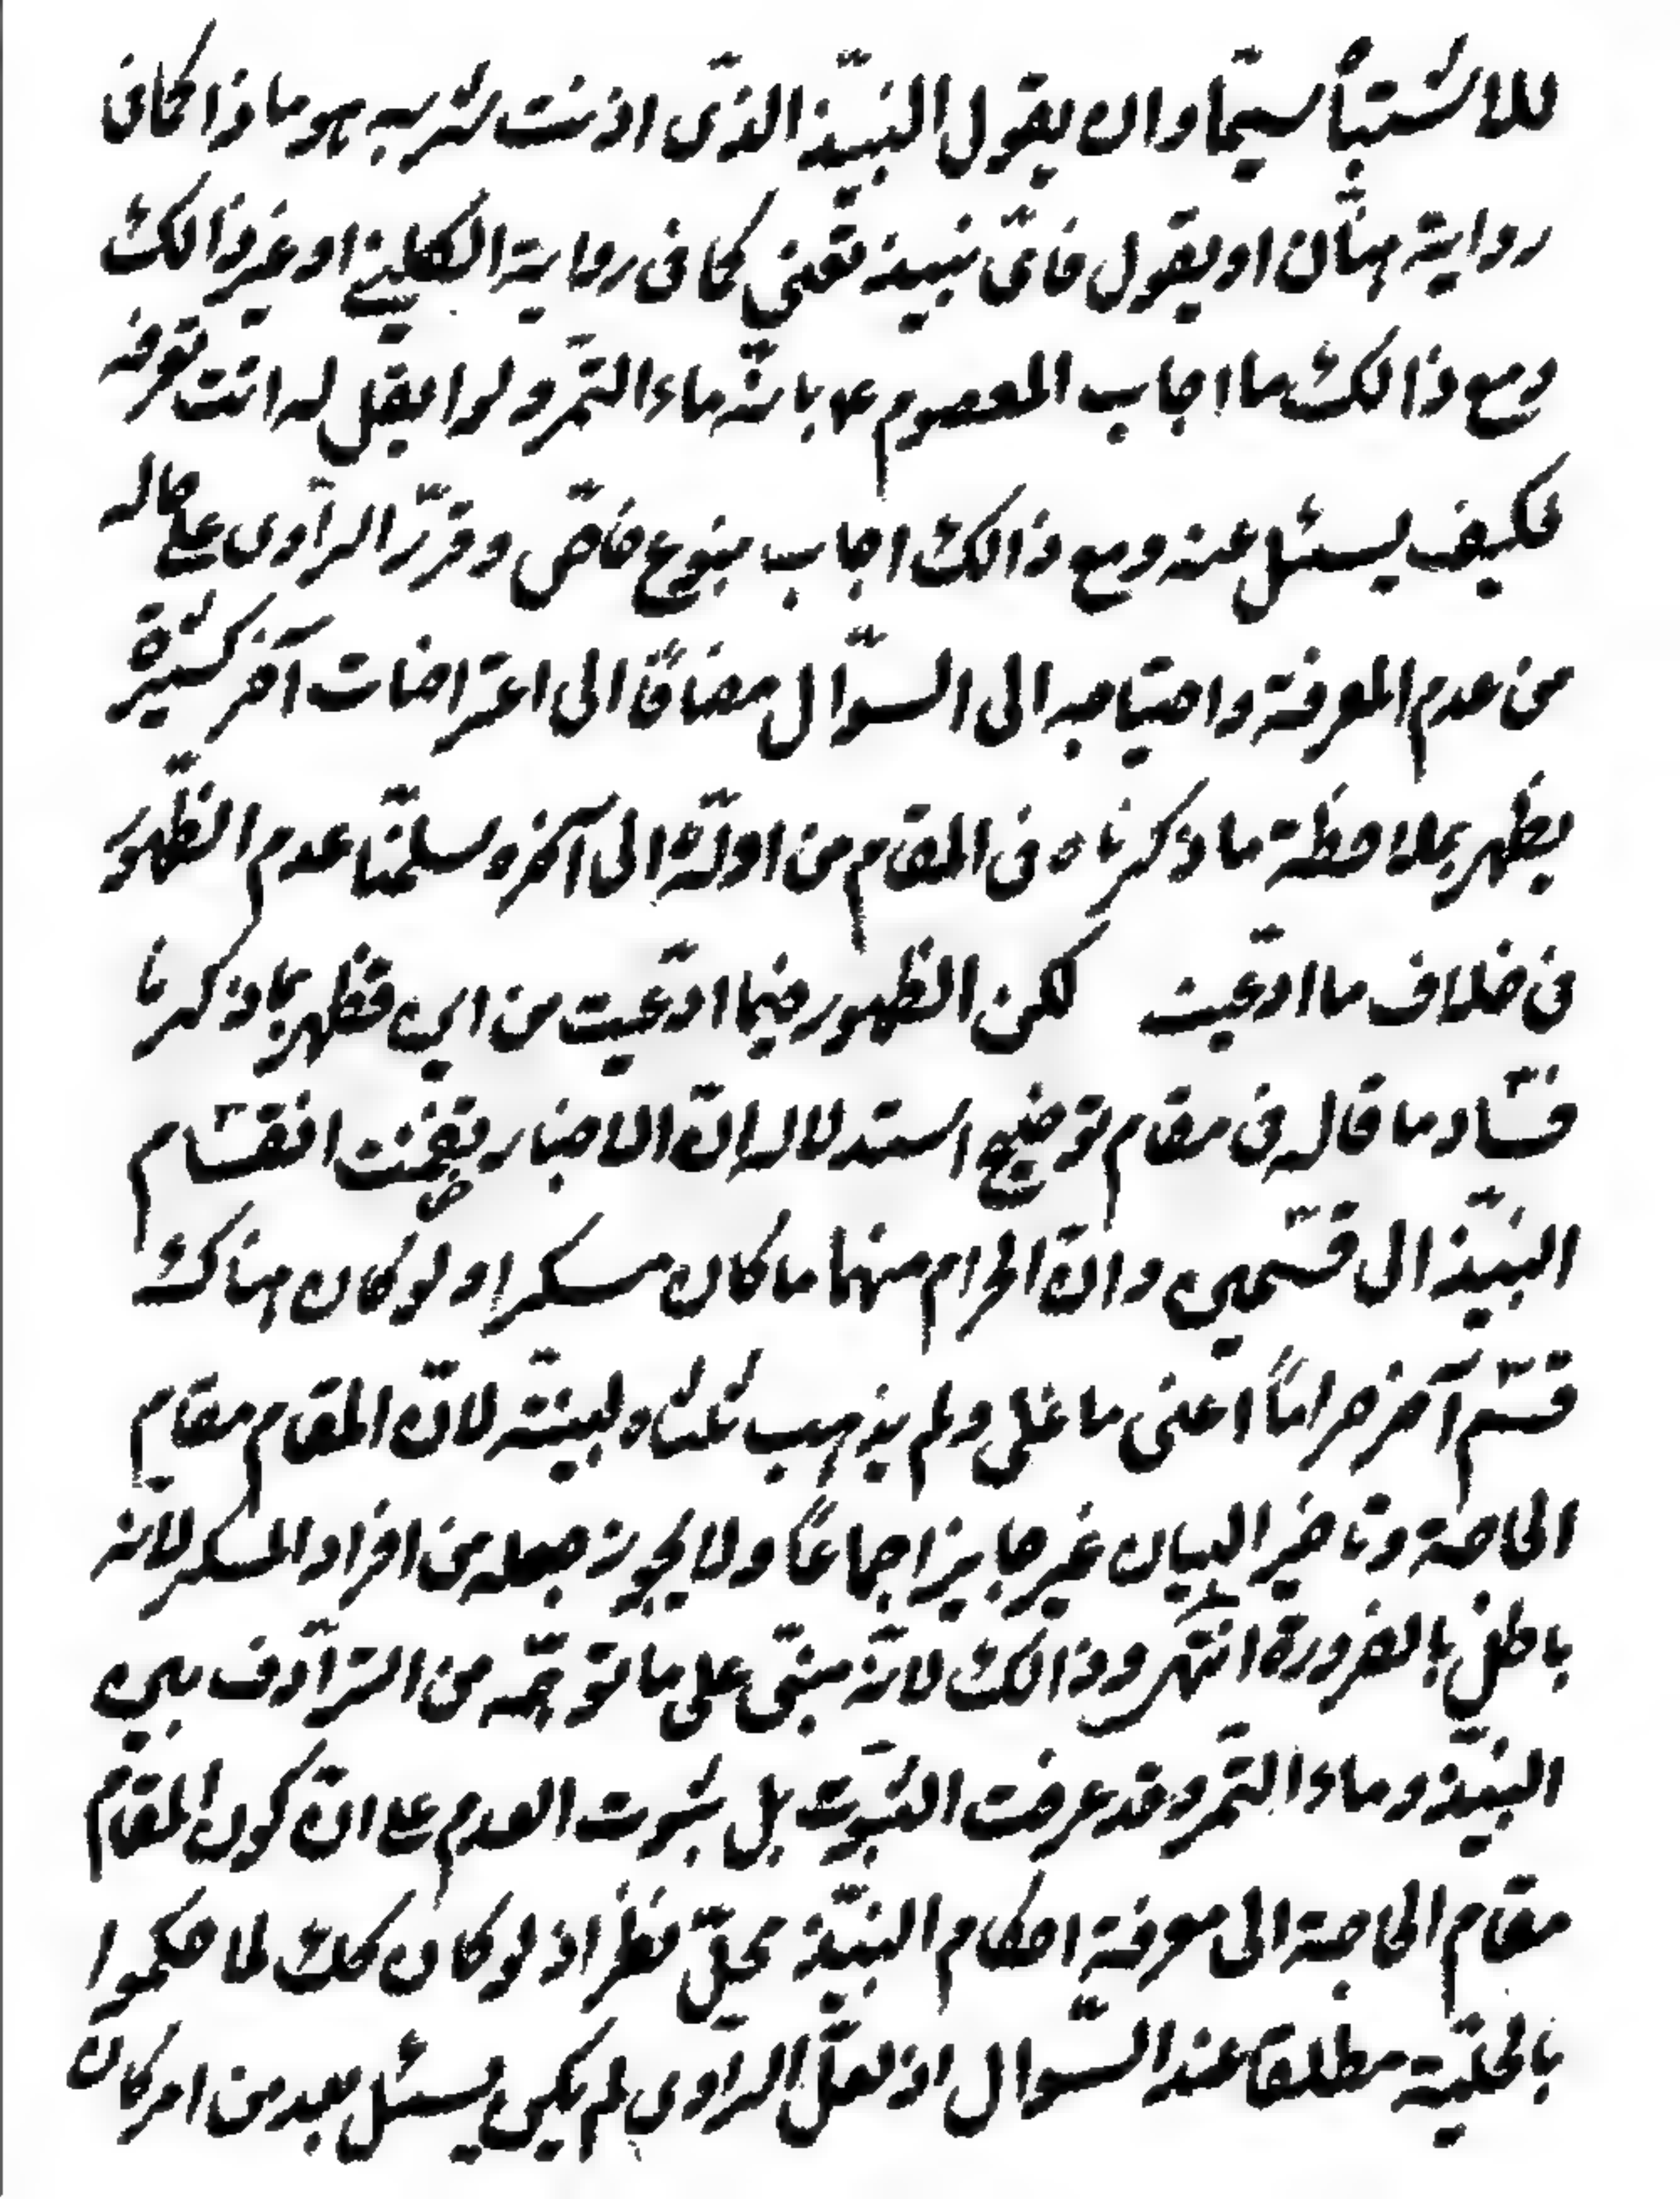 للاشتباه سيما وان يقول النبيذ الذى اذنت شربه هو ماذا كما فى
رواية حنان او يقول فاى نبيذ تعنى كما فى رواية الكلينى او غير ذالك
ومع ذالك ما اجاب المعصوم ع بانه ماء التمر ولو لا يقل له انت تعرفه
فكيف يسئل عنه ومع ذالك اجاب بنوع خاص وقرر الراوى على حاله
من عدم المعرفة واحتياجه الى السؤال مضافا الى اعتراضات آخر كثيرة
يظهر بملاحظة ما ذكرناه فى المقام من اوله الى آخره سلمنا عدم الظهور
فى خلاف ما ادعيت لكن الظهور فيما ادعيت من اين فظهر بما ذكرنا
فساد ما قاله فى مقام توضيح استدلاله ان الاخبار تضمنت انقسام
النبيذ الى قسمين وان الحرام منهما ما كان مسكرا ولو كان هناك
قسم آخر حراما اعنى ما غلى ولم يذهب ثلثاه لبينه لان المقام مقام
الحاجة وتاخير البيان غير جايز اجماعا ولا يجوز جعله من افراد المسكر لانه
باطل بالضرورة انتهى وذالك لانه مبنى على ما توهمه من الترادف بين
النبيذ وماء التمر وقد عرفت الثبوت بل ثبوت العدم على ان كون المقام
مقام الحاجة الى معرفة احكام النبيذ محل نظر اذ لو كان كك لما حكموا
بالحلية مطلقا عند السؤال اذ لعل الراوى لم يكن يسئل بعد من امر كان